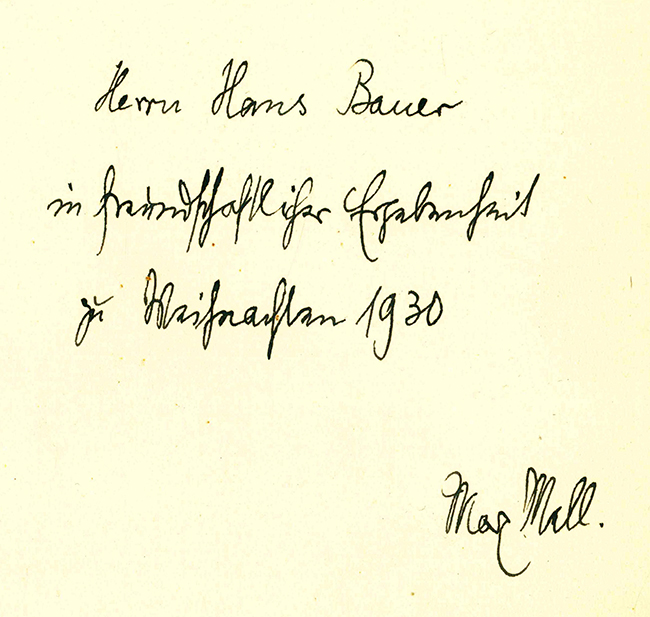 Herrn Hans Bauer
in freundschaftlicher Ergebenheit
zu Weihnachten 1930
Max Mell.